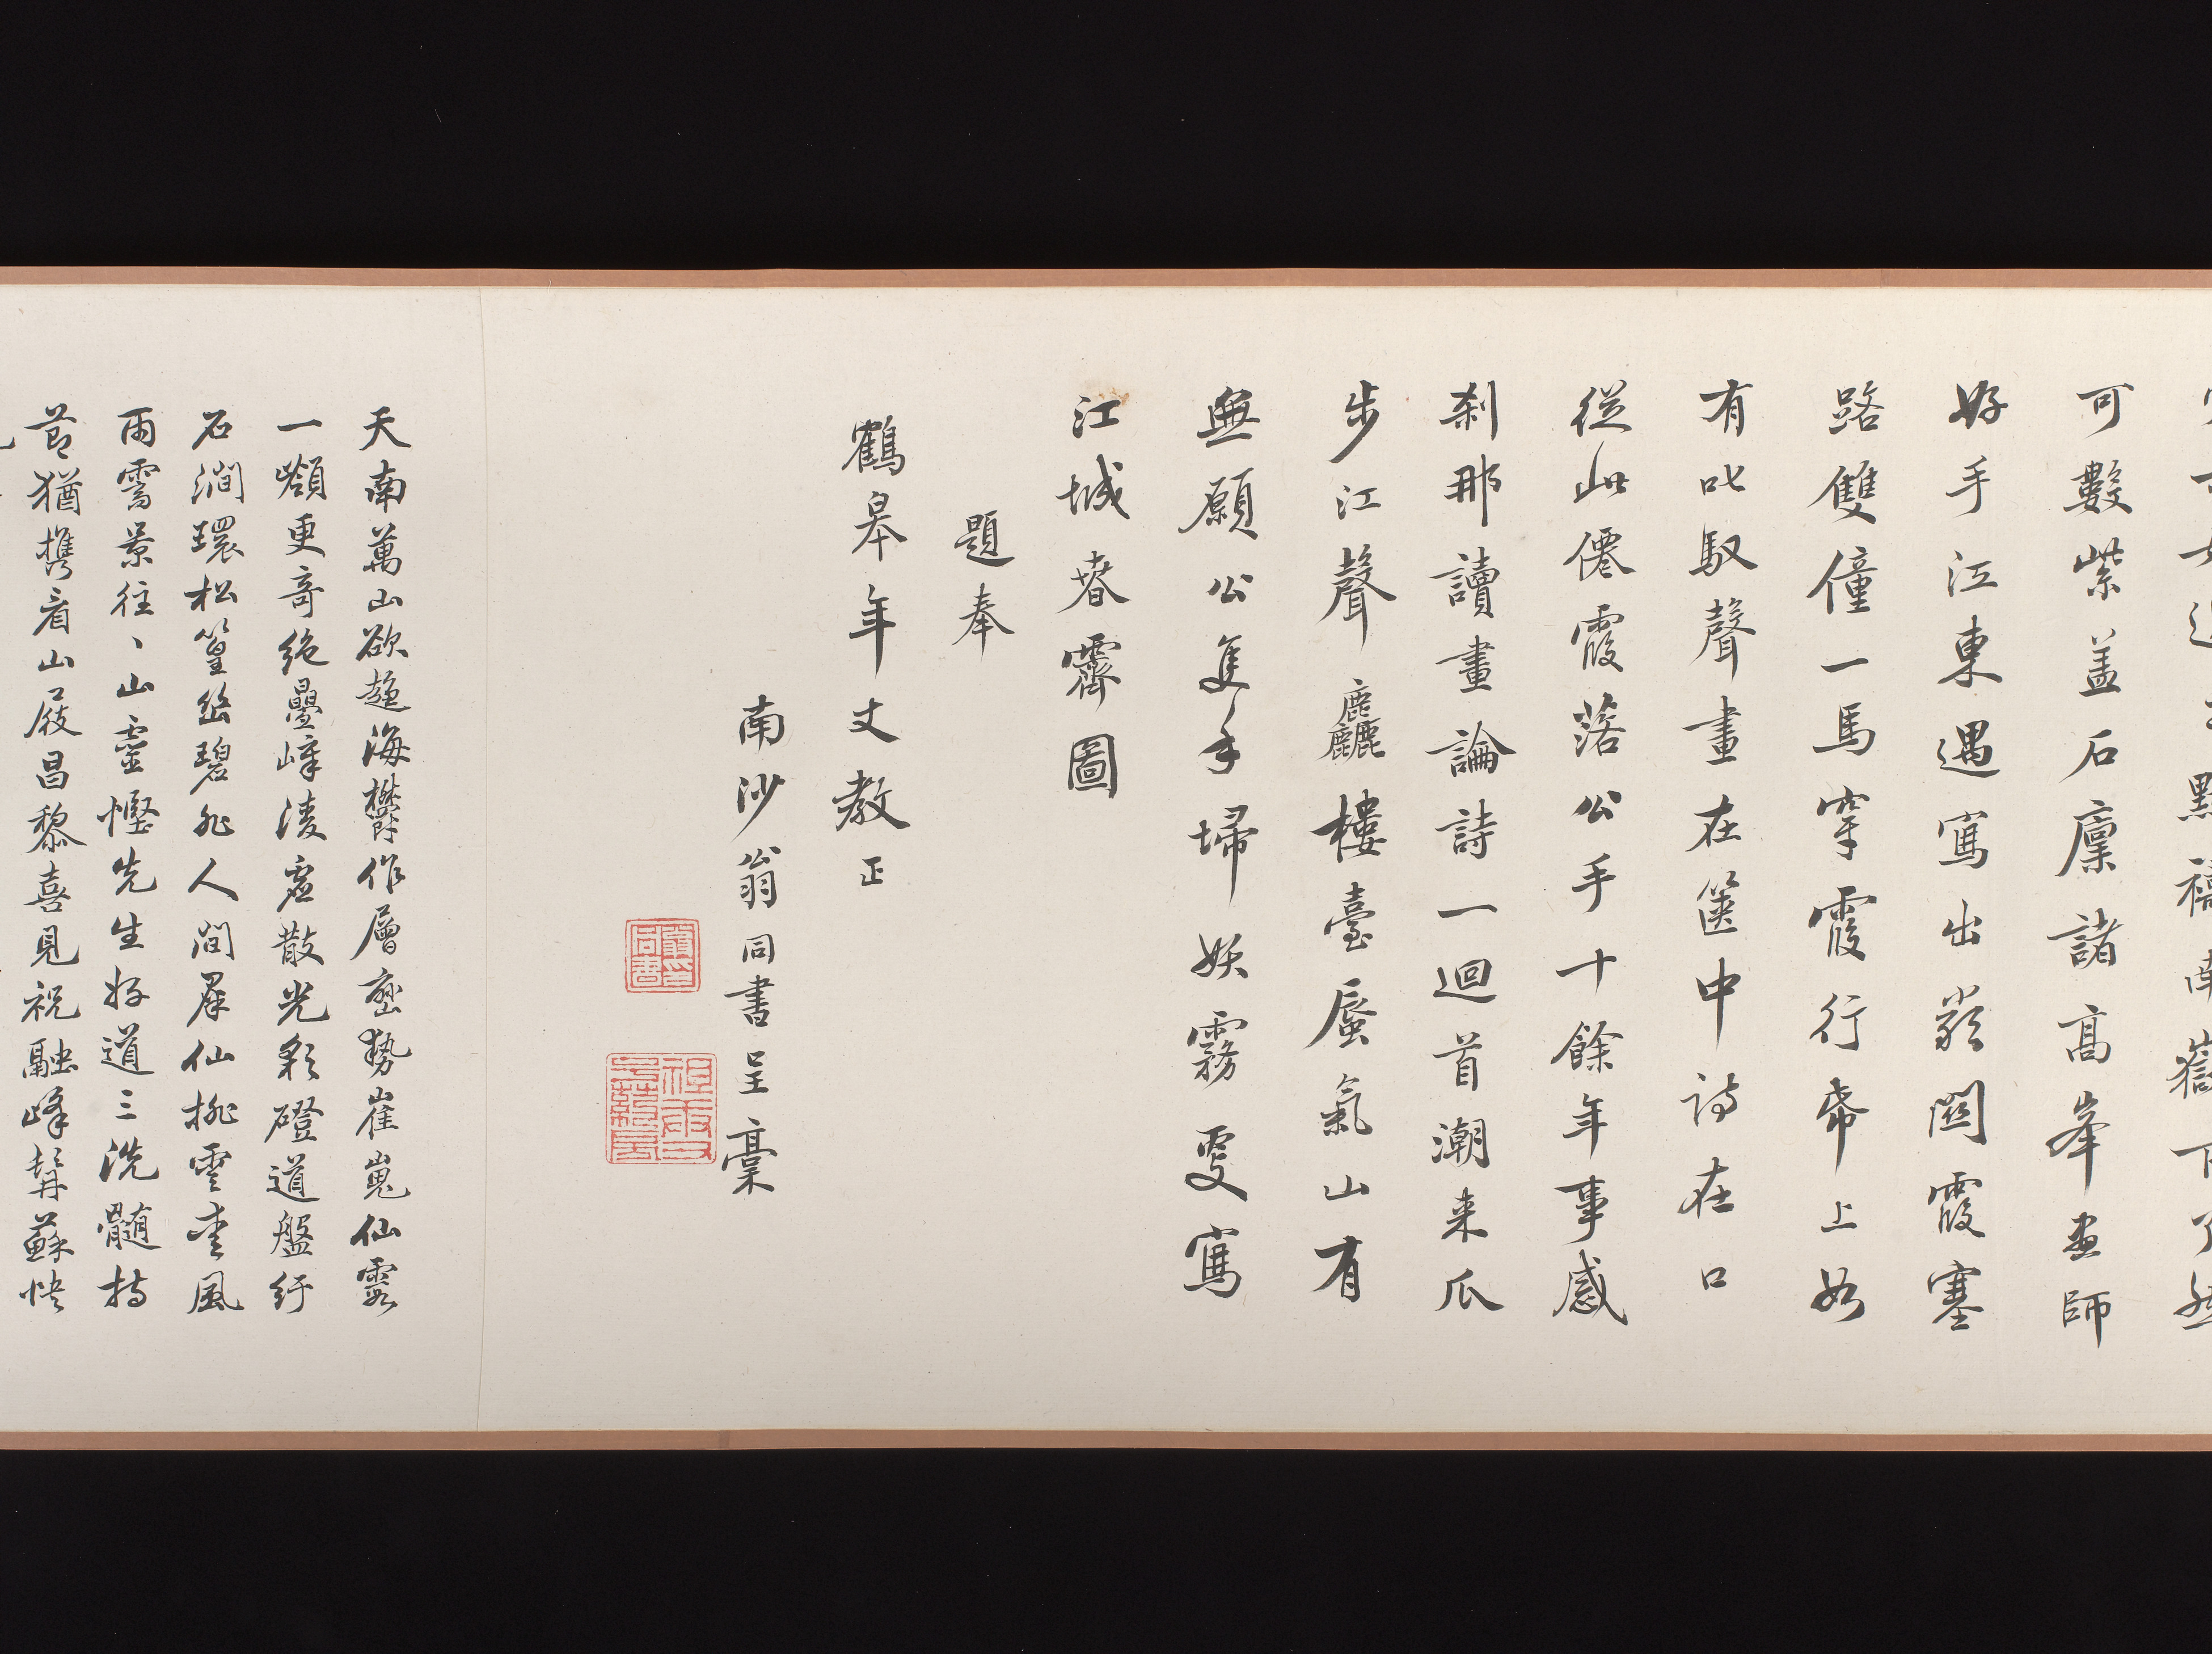 默禱南嶽下了然
可數紫蓋石廩諸高峯畫師
好手江東遇寫出嶺関霞塞
路雙僮一馬穿霞行帋上如
有叱馭聲畫在篋中詩在口
從此僊霞落公手十餘年事感
刹那讀畫論詩一迴首潮来瓜
步江聲麤樓臺蜃氣山有
無願公隻手埽妖霧更寫
江城春霽圖
題奉
鶴皋年丈教正
南沙翁同書呈稾
翁同書
天南萬山欲趨海欝作層巒勢崔嵬仙霞
一嶺更奇絶疊嶂淩虛散光彩磴道盤紆
石澗環松篁幽碧非人間羣仙挑雲雲風
雨霽景往、山靈慳先生好道三洗髓持
節猶携看山屐昌黎喜見祝融峰髯蘇快